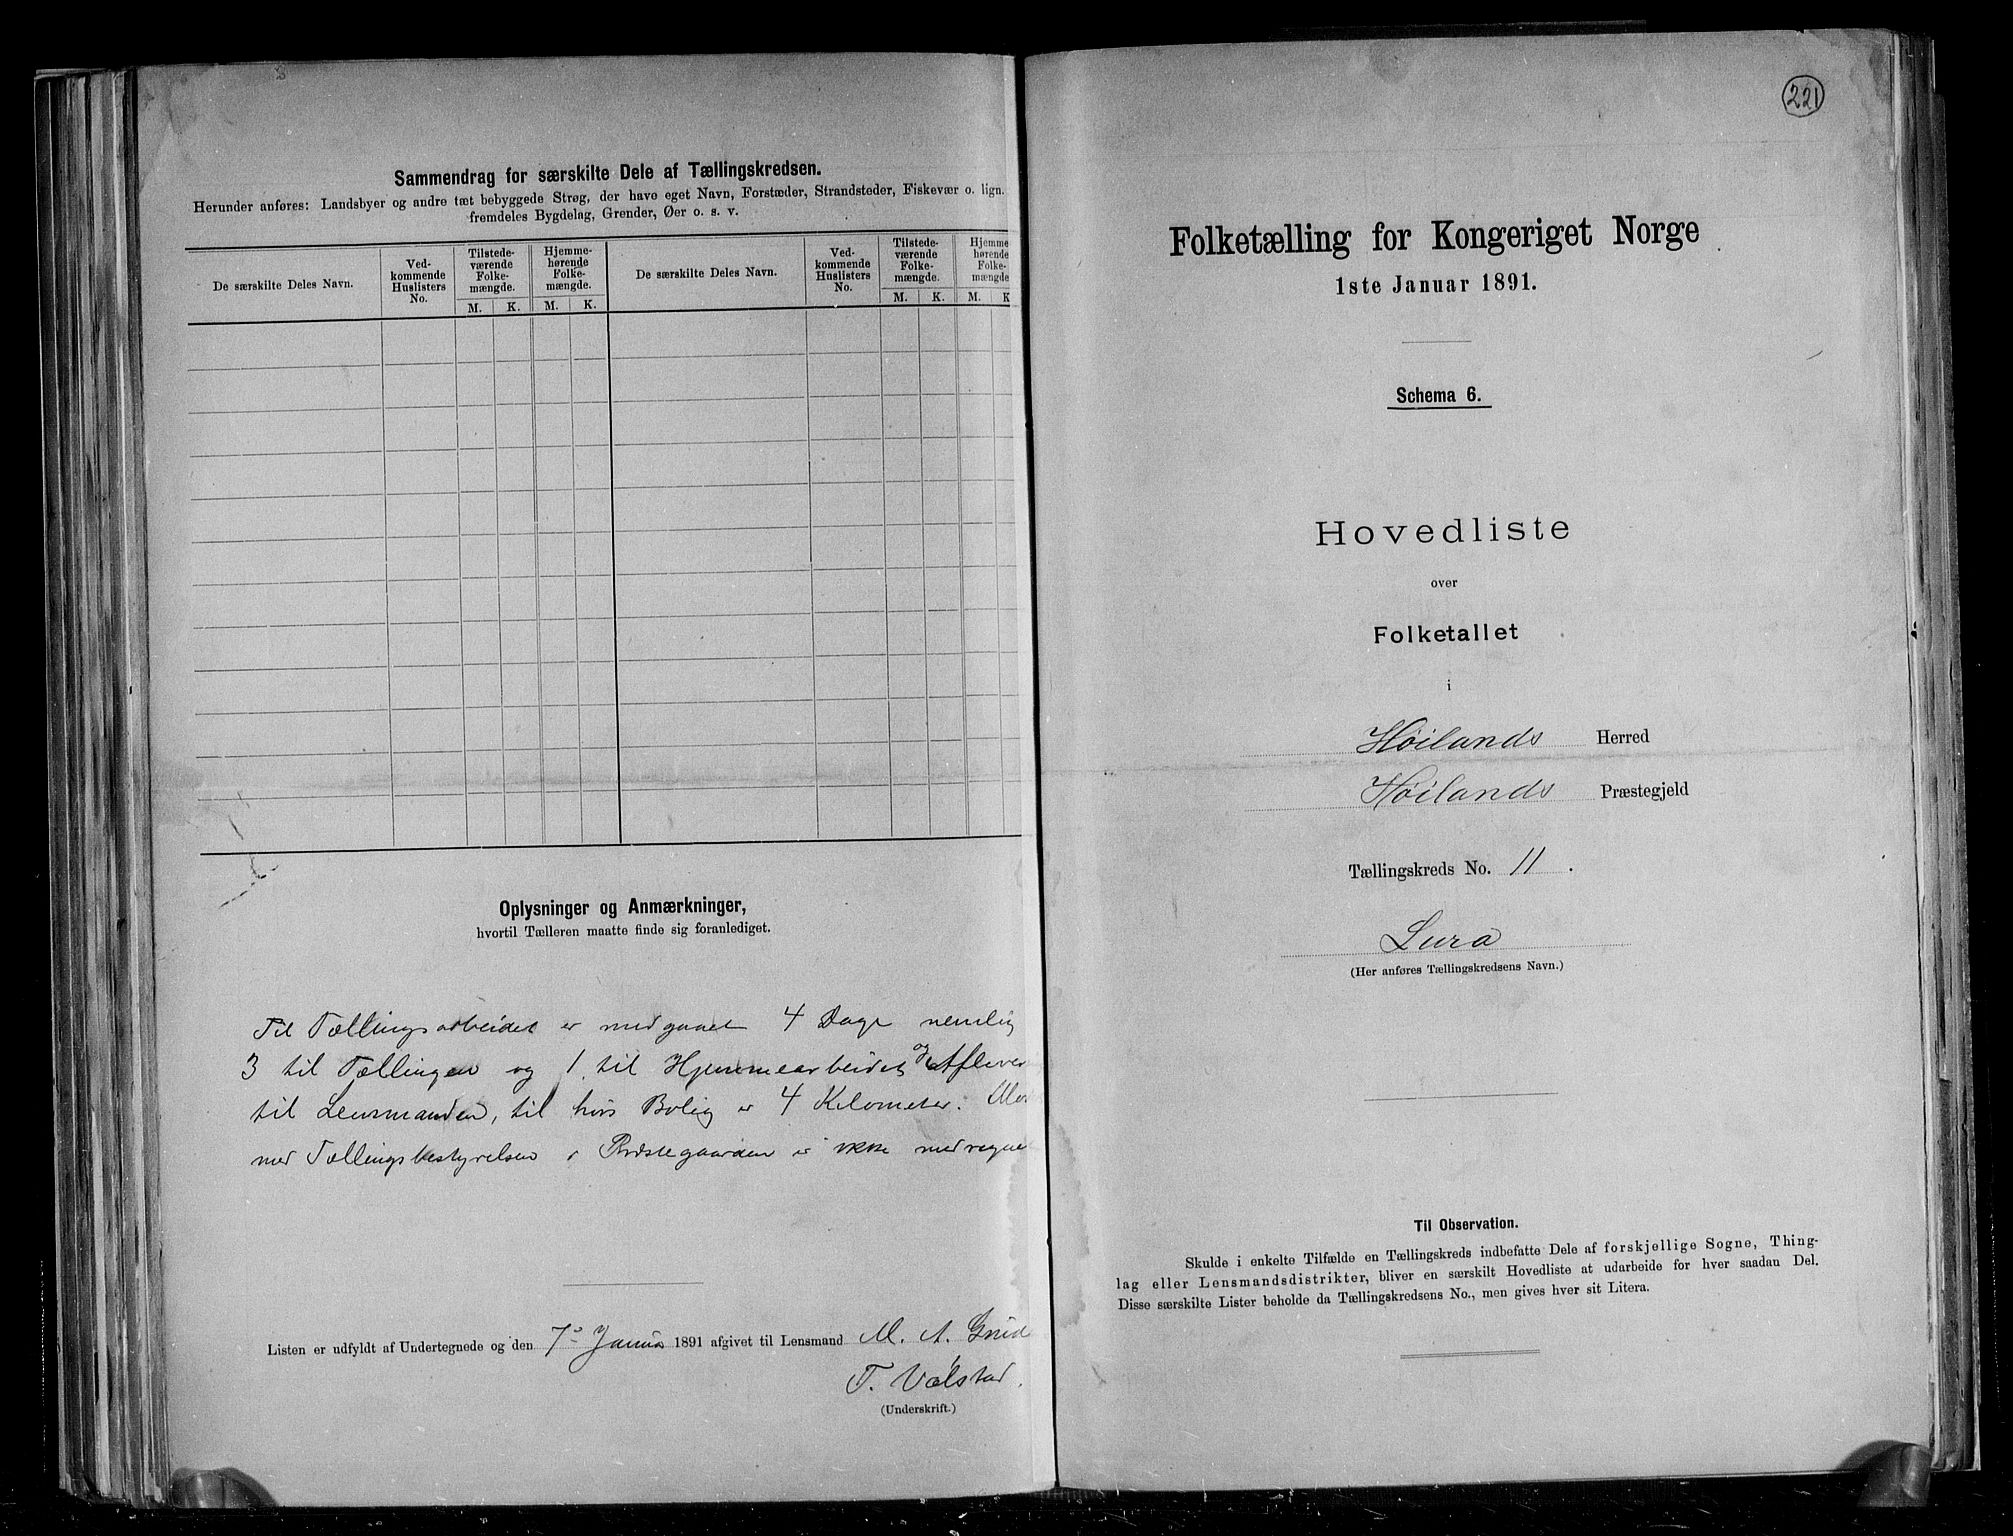 Sammendrag for særskilte Dele af Tællingskredsen.
Herunder anføres: Landsbyer og andre tæt bebyggede Strøg, der have eget Navn, Forstæder, Strandsteder, Fiskevær o. lign.
fremdeles Bygdelag, Grender, Øer o. s. v.
De særskilte Deles Navn.
Ved-
kommende
Huslisters
No.
Tilstede-
værende
Folke-
mængde.
M. K.
Hjemme-
hørende
Folke-
mængde.
M. K.
De særskilte Deles Navn.
Ved-
kommende
Huslisters
No.
Tilstede-
værende
Folke-
mængde.
M. K.
Hjemme
hørende
Folke-
mængde.
M. K
Oplysninger og Anmærkninger,
hvortil Tælleren maatte finde sig foranlediget.
Til Tællingsarbeidet er medgaaet 4 Dage nemlig
3 til Tællingen og 1 til Hjemmearbeidet og Aflever
til Lensmanden, til hvis Bolig er 4 Kilometer.
med Tællingsbestyrelsen i Præstegaarden er ikke medregne
Listen er udfyldt af Undertegnede og den 7de Januar 1891 afgivet til Lensmand M. A. Grud
T. Vælstad.
(Underskrift.)
221
Folketælling for Kongeriget Norge
1ste Januar 1891.
Schema 6.
Hovedliste
over
Folketallet
i
Høilands Herred
Høilands Præstegjeld
Tællingskreds No. 11.
Lura
(Her anføres Tællingskredsens Navn.)
Til Observation.
Skulde i enkelte Tilfælde en Tællingskreds indbefatte Dele af forskjellige Sogne, Thing-
lag eller Lensmandsdistrikter, bliver en særskilt Hovedliste at udarbeide for hver saadan Del.
Disse særskilte Lister beholde da Tællingskredsens No., men gives hver sit Litera.